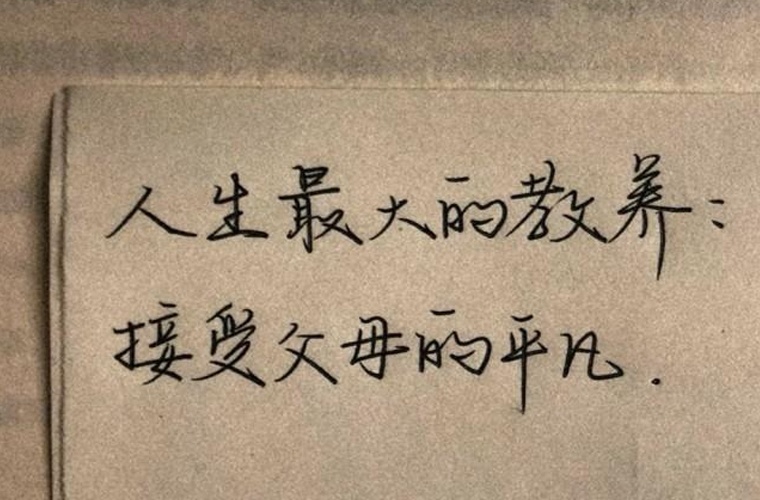 人生最大的教养:
接受父母的平凡.